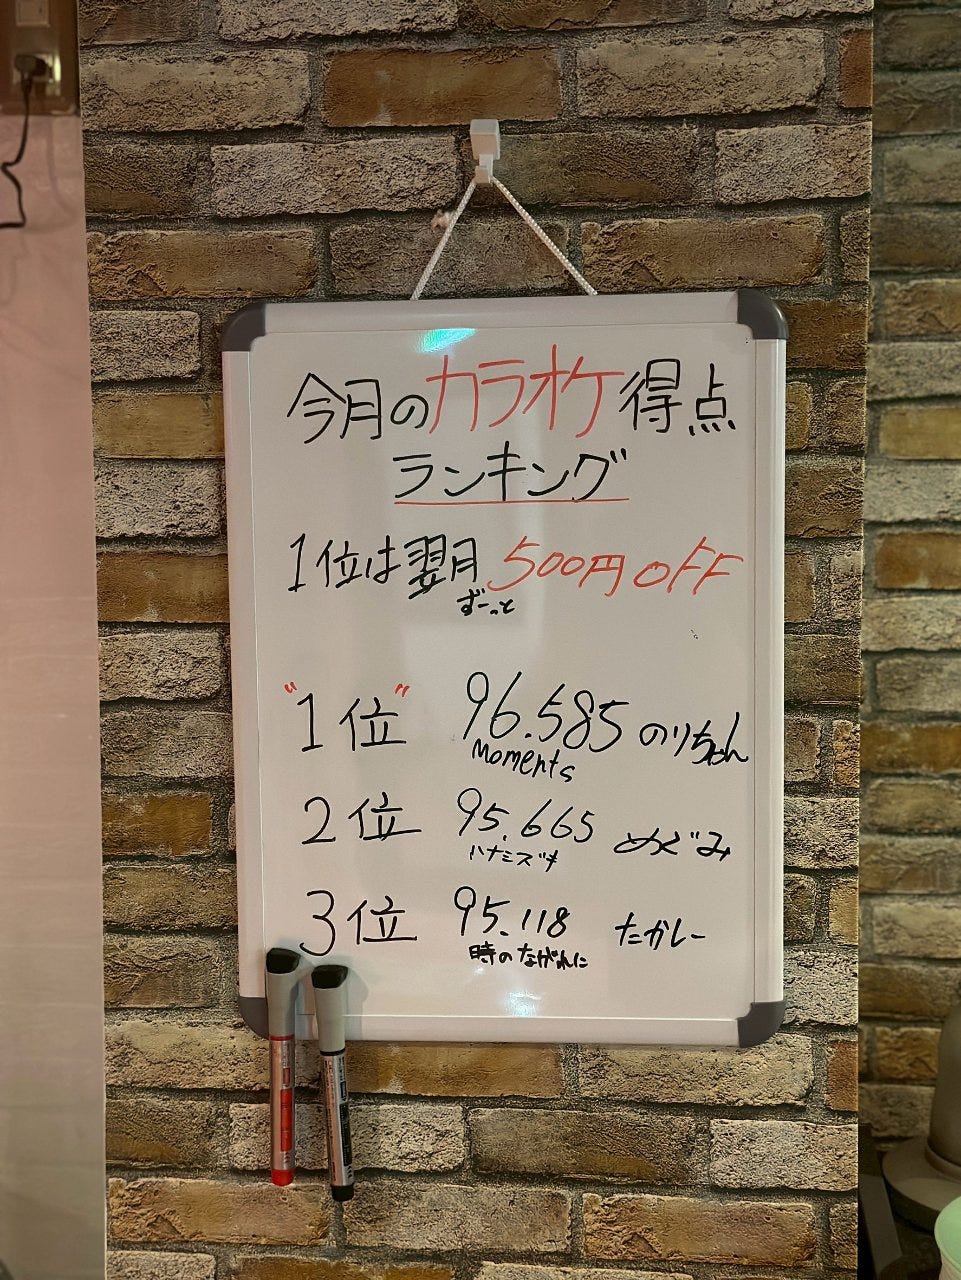 今月のカラオケ得点
ランキング
1位は翌月500円OFF
ずーっと
"1位" 96.585 のりちゃん
Moments
2位 95.665 めぐみ
ハナミズキ
3位 95.118 たかしー
時のながれに